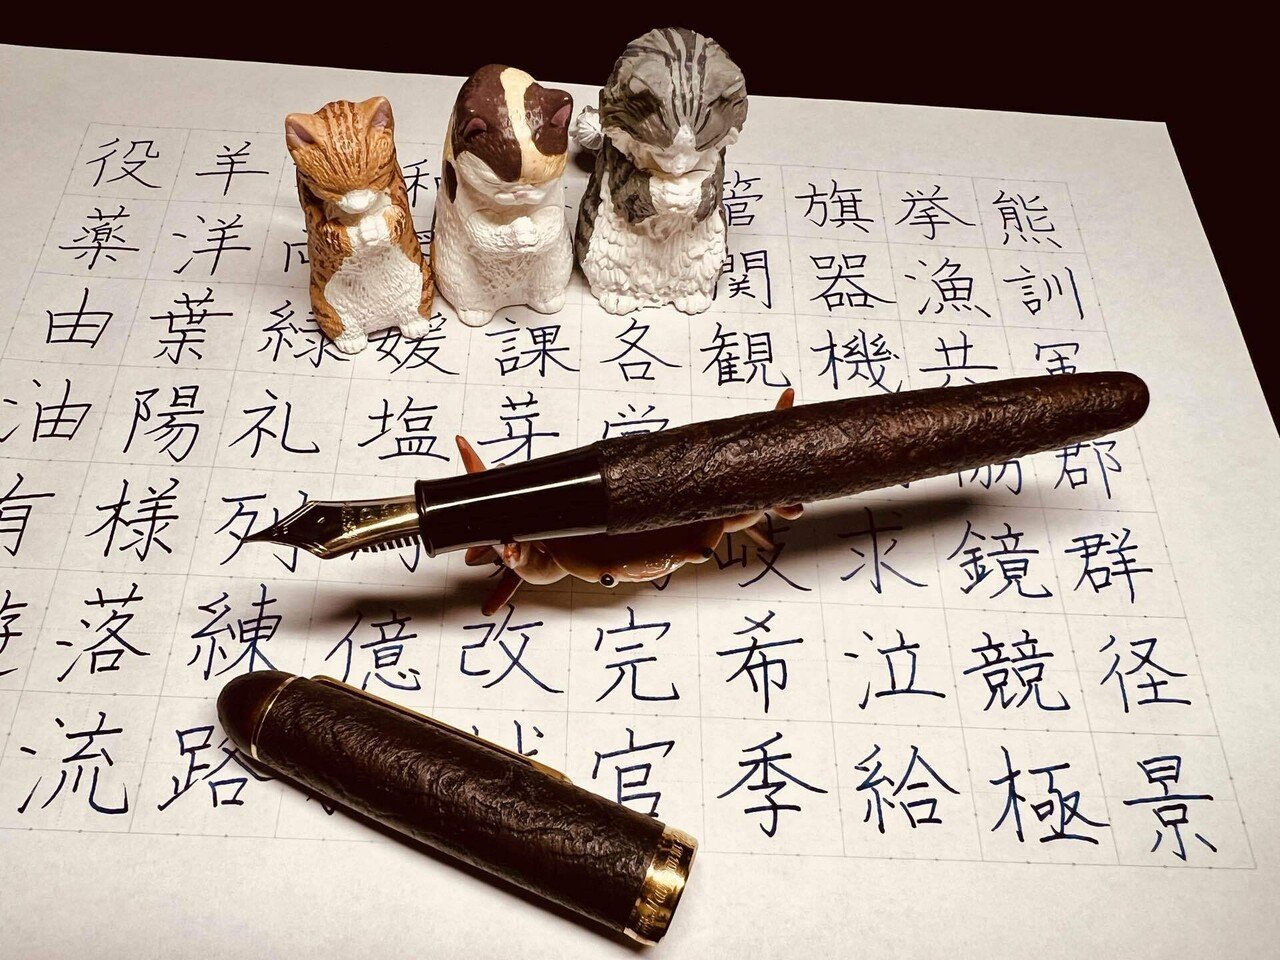 役薬由油有遊
羊洋葉陽様落流
両緑礼列練路
和媛塩岡億
課芽改械
各覚完官
管関観岐希季
旗器機求泣給
挙漁共協鏡競極
熊訓軍郡群径景